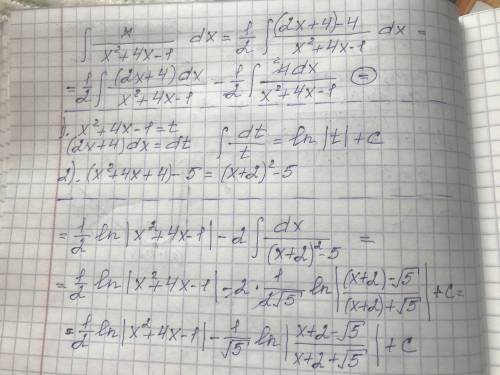 ∫ x/(x²+4x-1) dx = 1/2 ∫ ((2x+4)-4)/(x²+4x-1) dx =
= 1/2 ∫ (2x+4)dx/(x²+4x-1) - 1/2 ∫ 4dx/(x²+4x-1) ⊜
1). x²+4x-1=t
(2x+4)dx=dt ∫ dt/t = ln|t|+C
2). (x²+4x+4)-5=(x+2)²-5
= 1/2 ln|x²+4x-1| - 2 ∫ dx/((x+2)²-5) =
= 1/2 ln|x²+4x-1| - 2 · 1/(2√5) ln|((x+2)-√5)/((x+2)+√5)| + C =
= 1/2 ln|x²+4x-1| - 1/√5 ln|(x+2-√5)/(x+2+√5)| + C